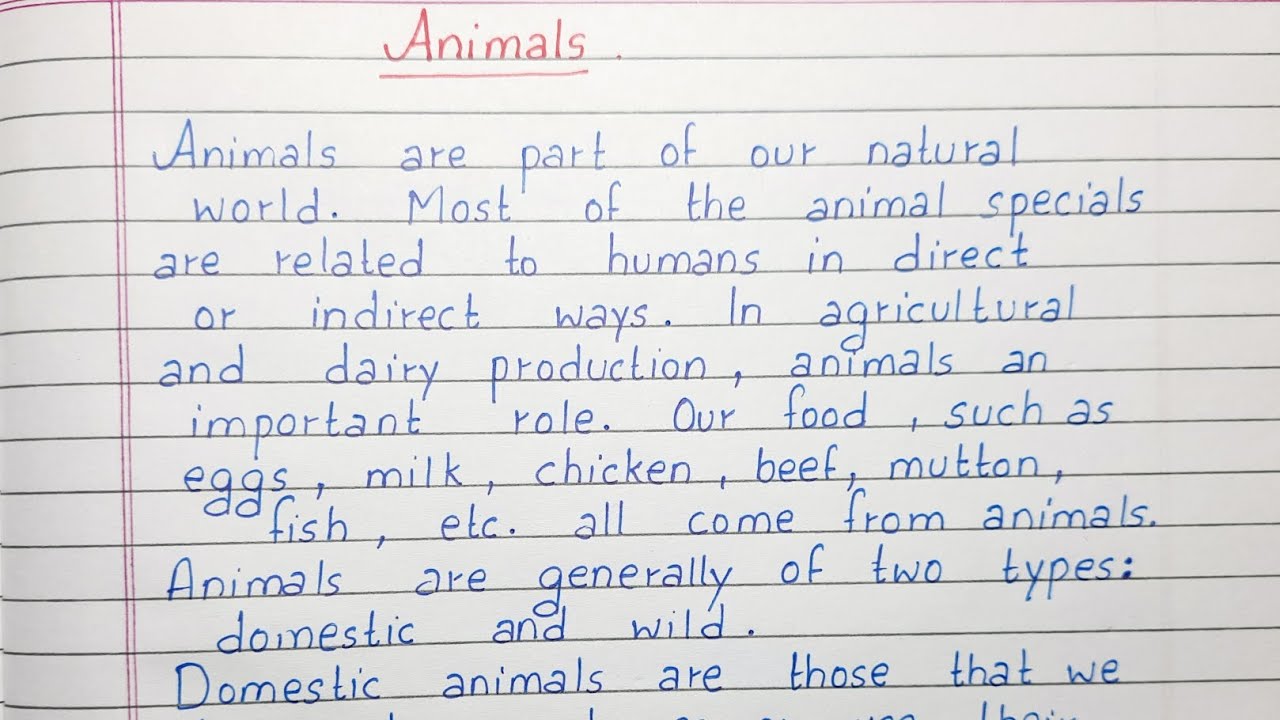 Animals.
Animals are part of our natural
world. Most of the animal specials
are related to humans in direct
or indirect ways. In agricultural
and dairy production, animals an
important role. Our food, such as
eggs, milk, chicken, beef, mutton,
fish, etc. all come from animals.
Animals are generally of two types:
domestic and wild.
Domestic animals are those that we